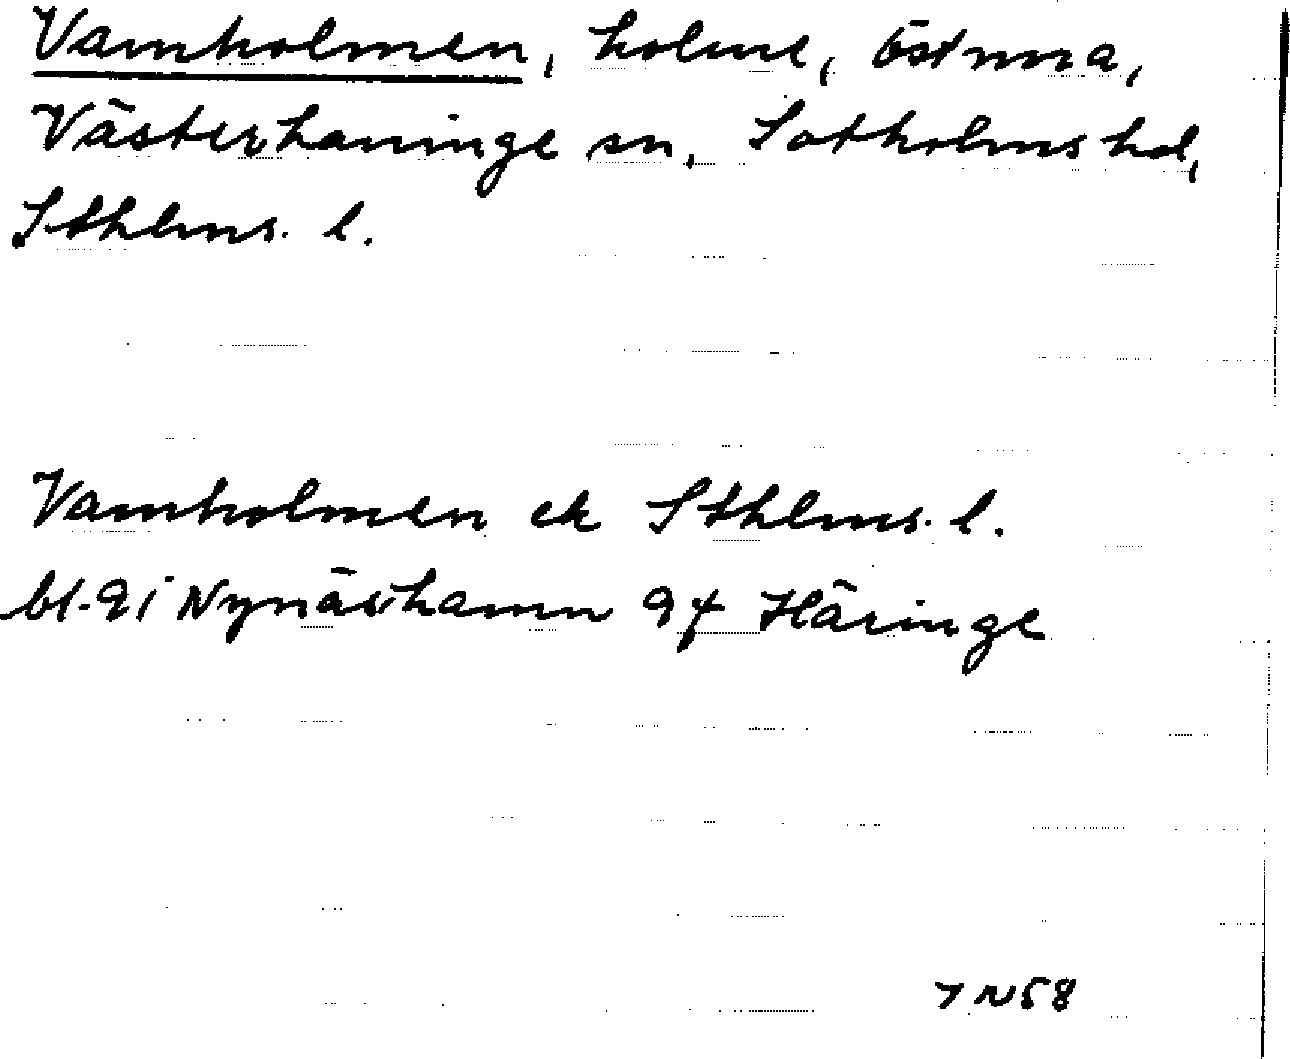 Vamholmen, holme, Östnora,
Västerhaninge sn, Sotholms hd,
Sthlms. l.
Vamholmen ek Sthlms. l.
bl. 9 i Nynäshamn 9f Häringe
7 N 58